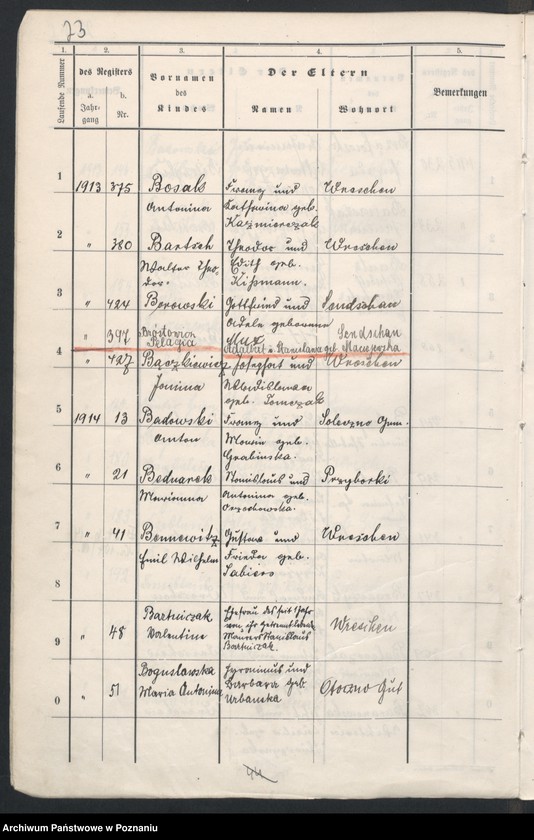 73
1. 2. 3. 4. 5.
Laufende Nummer
des Registers
a. Jahrgang
b. Nr.
Vornamen
des
Kindes
Der Eltern
Namen Wohnort
Bemerkungen
1 1913 375 Bosak Franz und Wreschen
Antonina Katharina geb.
Kazmierczak
2 " 380 Bartsch Theodor und Wreschen
Walter Theo- Edith geb.
dor. Kißmann.
3 " 424 Borowski Gottfried und Sendschau
Adele geborene
" 397 Brostowicz Sendschau
Pelagia Adalbert u. Stanislawa geb. Maciejewska
4 " 427 Bączkiewicz Josephat und Wreschen
Janina Wladislawa
geb. Tomczak
5 1914 13 Badowski Franz und
Anton Maria geb.
Grabinska.
6 " 21 Bednarek Stanislaus und Przyborki
Marianna Antonina geb.
7 " 41 Bennewitz Gustav und Wreschen
Emil Wilhelm Frieda geb.
8
Bartniczak Ehefrau des seit
9 " 48 Valentine Wreschen
Maurers Stanislaus
Bartniczak.
Boguslawska Hyronimus und
0 " 51 Maria Antonina Barbara geb. Otoczno Gut
Urbanska
44
Archiwum Państwowe w Poznaniu